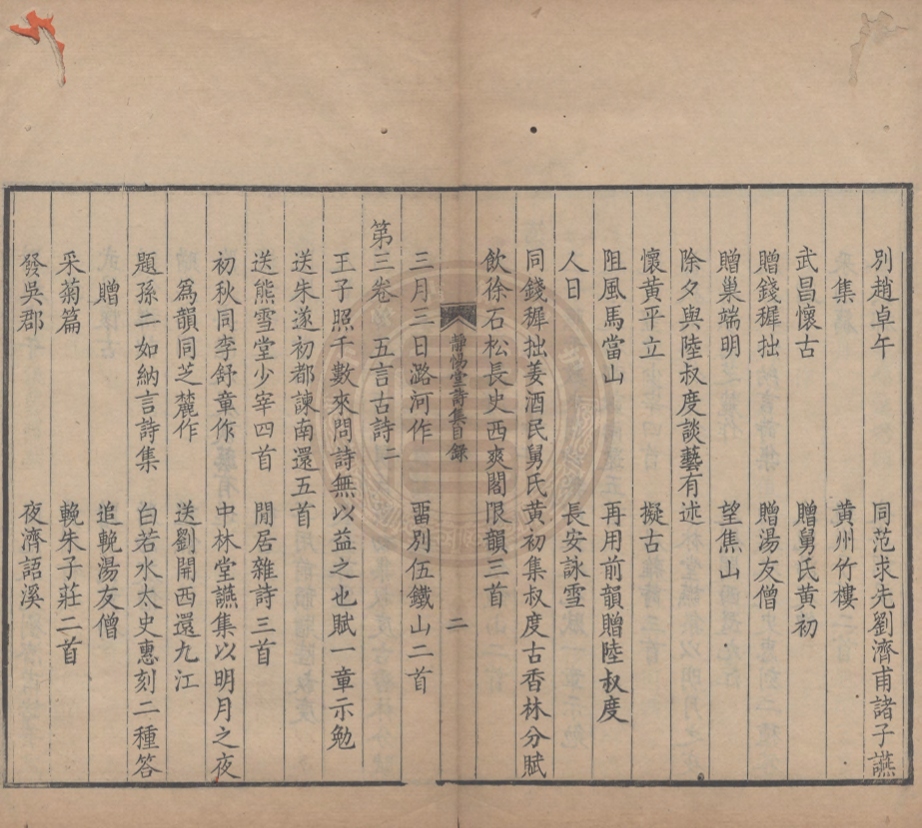 別趙卓午　同范求先劉濟甫諸子讌
集　黄州竹樓
武昌懷古　贈舅氏黄初
贈錢穉拙　贈湯友僧
贈巢端明　望焦山
除夕與陸叔度談藝有述
懷黄平立　擬古
阻風馬當山　再用前韻贈陸叔度
人日　長安詠雪
同錢穉拙姜酒民舅氏黄初集叔度古香林分賦
飲徐石松長史西爽閣限韻三首
靜惕堂詩集目録　二
三月三日潞河作　畱別伍鐵山二首
第三卷　五言古詩二
王子照千數來問詩無以益之也賦一章示勉
送朱遂初都諫南還五首
送熊雪堂少宰四首　閒居雜詩三首
初秋同李舒章作　中林堂讌集以明月之夜
爲韻同芝麓作　送劉開西還九江
題孫二如納言詩集　白若水太史惠刻二種答
贈　追輓湯友僧
采菊篇　輓朱子莊二首
發吳郡　夜濟語溪